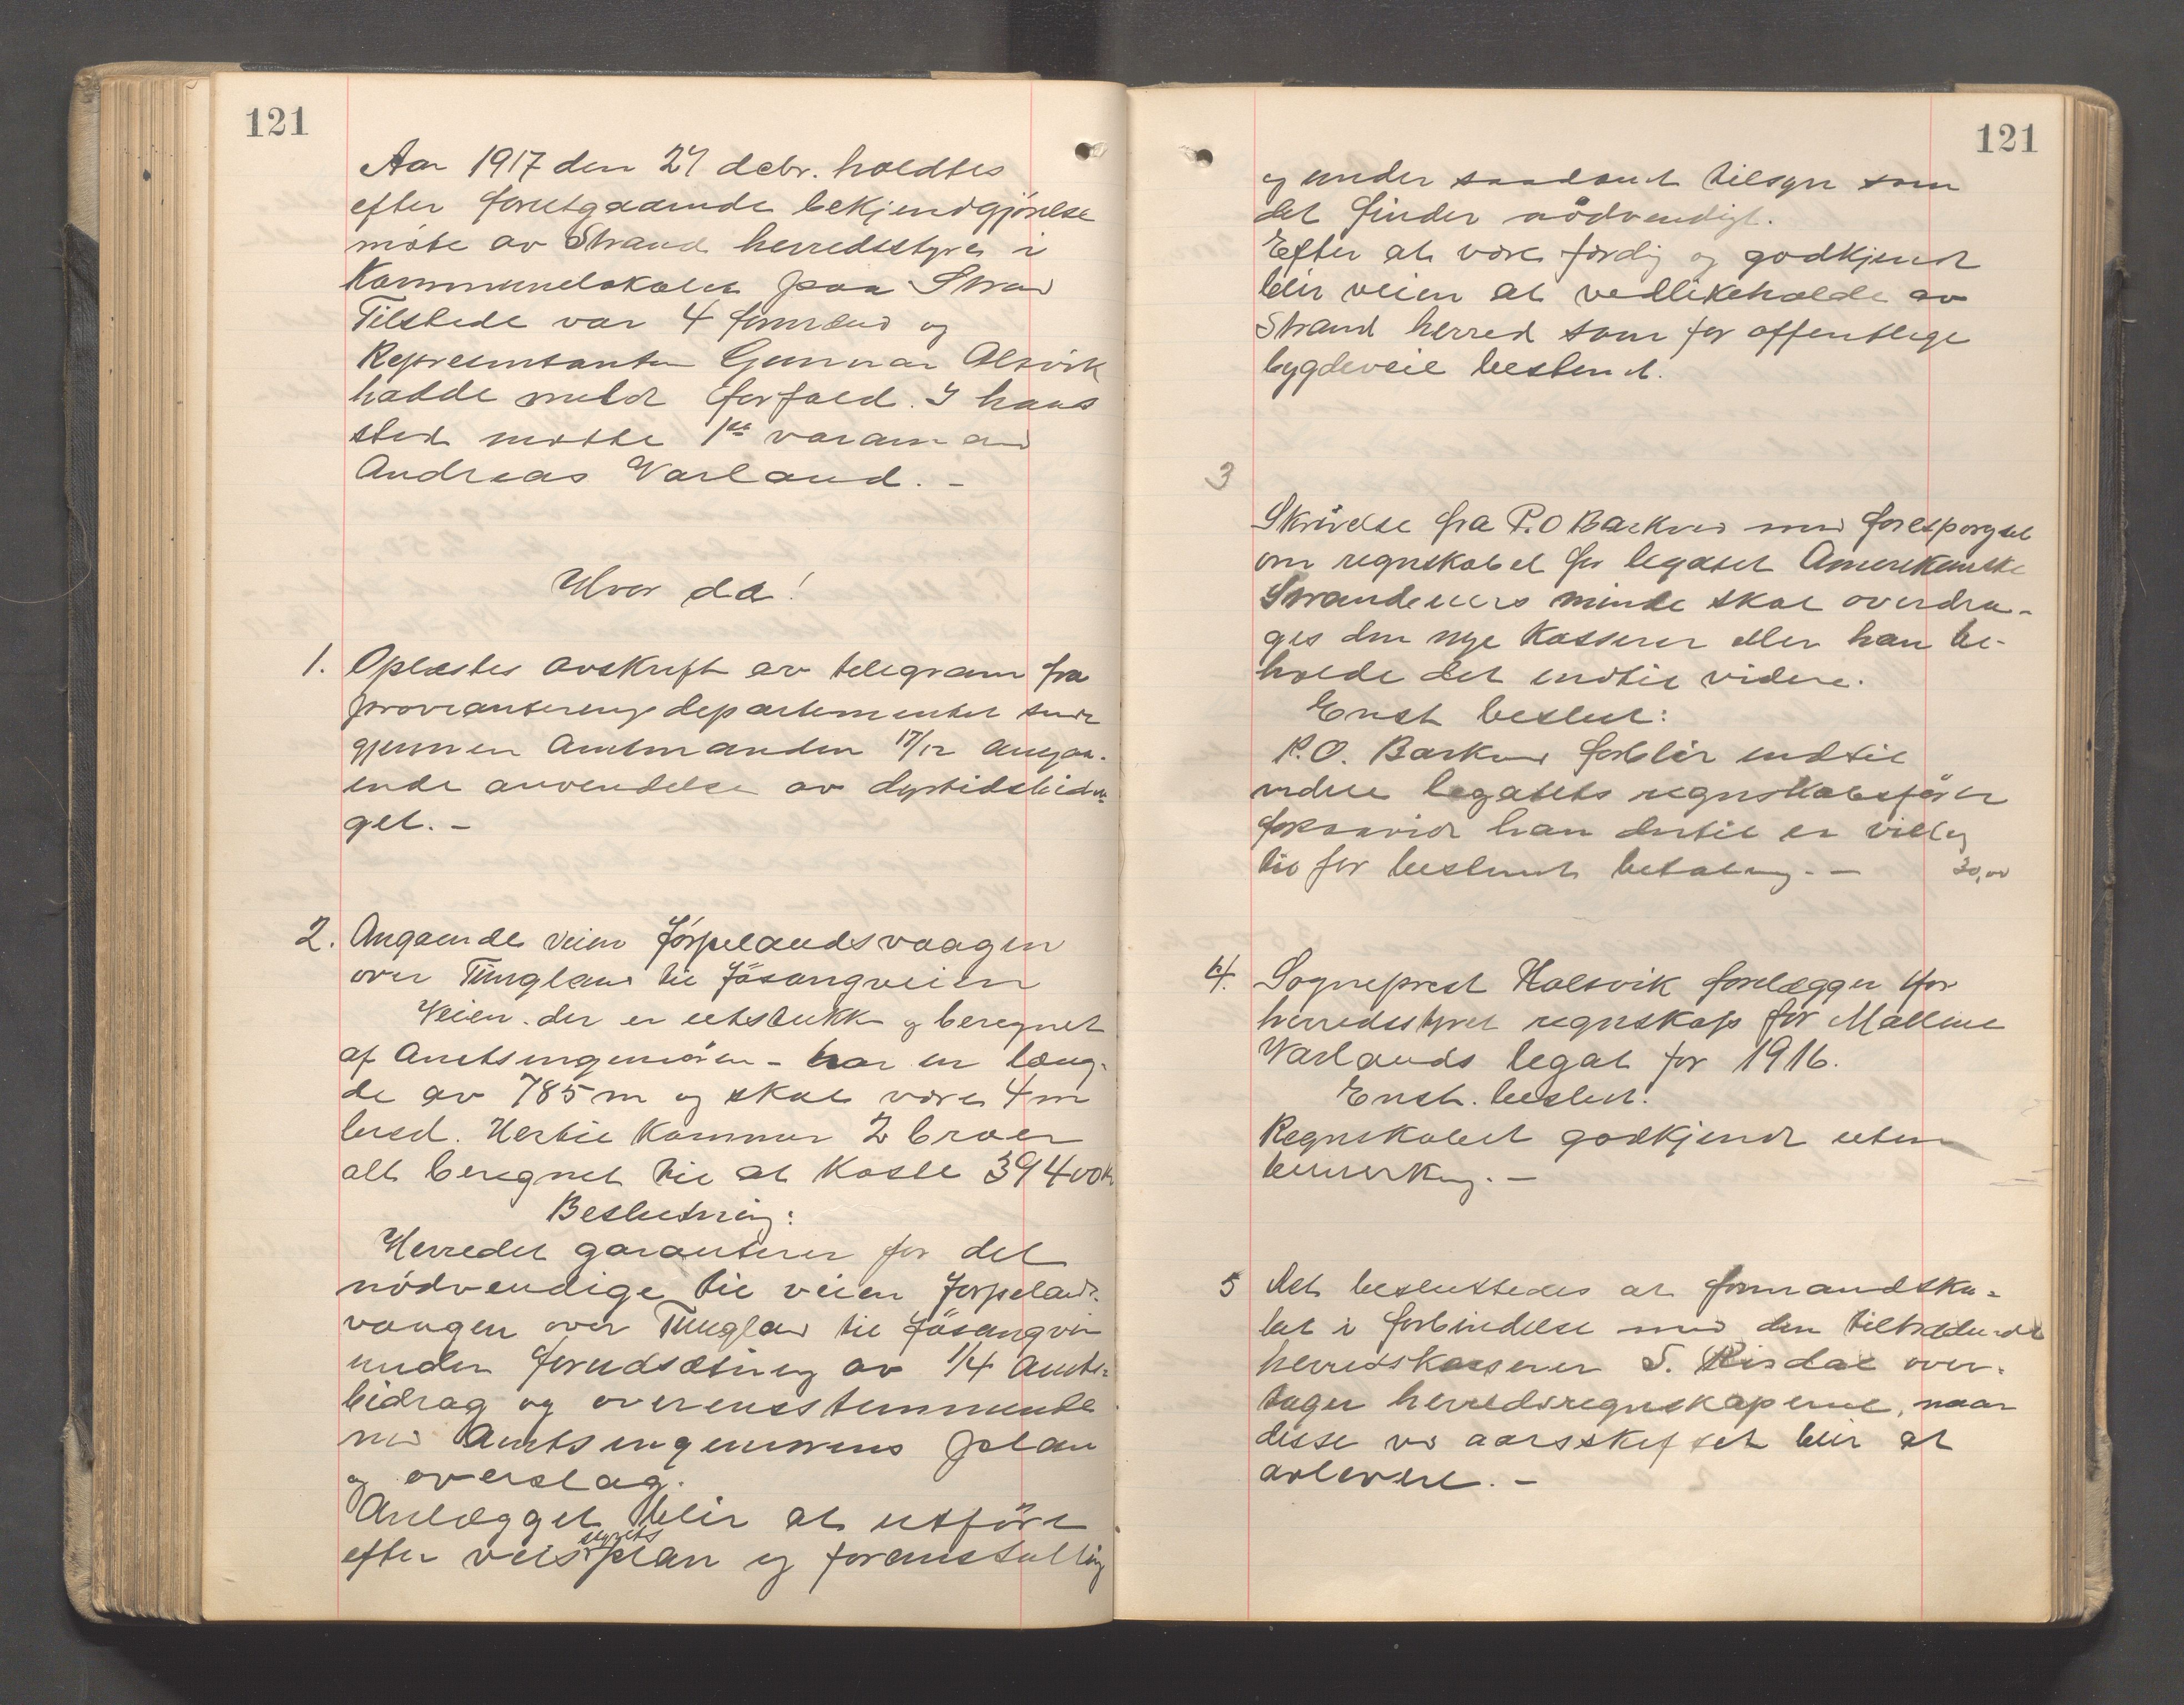 121
Aar 1917 den 27 debr. holdtes
efter forutgaaende bekjendtgjørelse
møte av Strand herredsstyre i
Kommunelokalet paa Strand
Tilstede var 4 formænd og
Repræsentanten Gunnar Alsvik
hadde meldt forfald. I hans
sted møtte 1ste varamand
Andreas Varland. –
Hvor da!
1. Oplæstes avskrift av telegram fra
provianteringsdepartementet sendt
gjennem Amtmanden 17/12 angaa-
ende anvendelse av dyrtidsbidra
get. –
2. Angaaende veien Jörpelandsvaagen
over Tungland til Jösangveien
Veien der er utstukket og beregnet
af Amtsingeniøren – har en læng-
de av 785 m og skal være 4 m
bred. Hertil kommer 2 broer
alt beregnet til at koste 39400 kr
Beslutning:
Herredet garanterer for det
nödvendige til veien Jørpelands-
vaagen over Tungland til Jösangvei
under forudsætning av 1/4 Amts-
bidrag og overensstemmende
med Amtsingeniørens plan
og overslag.
Anlægget blir at utföre
efter veistyrets plan og foranstalting
121
og under saadant tilsyn som
det finder nödvendigt.
Efter at være færdig og godkjendt
blir veien at vedlikeholde av
Strand herred som for offentlige
bygdeveie bestemt.
3
Skrivelse fra P.O Barkved med forespørgsel
om regnskabet for legatet Amerikanske
Strandbuers minde skal overdra-
ges den nye Kasserer eller han be-
holde det indtil videre.
Enst beslut:
P.O. Barkved forblir indtil
videre legatets regnskabsfører
forsaavidt han dertil er villig
til for bestemt betaling. –
30,00
4. Sogneprest Halsvik forelægger for
herredsstyret regnskap for Malline
Varlands legat for 1916.
Enst. beslut:
Regnskabet godkjendt uten
bemerkning. –
5 Det besluttedes at formandska-
bet i forbindelse med den tiltrædende
herredskasserer S. Risdal over-
tager herredsregnskaperne, naar
disse ved aarsskiftet blir at
avlevere. –